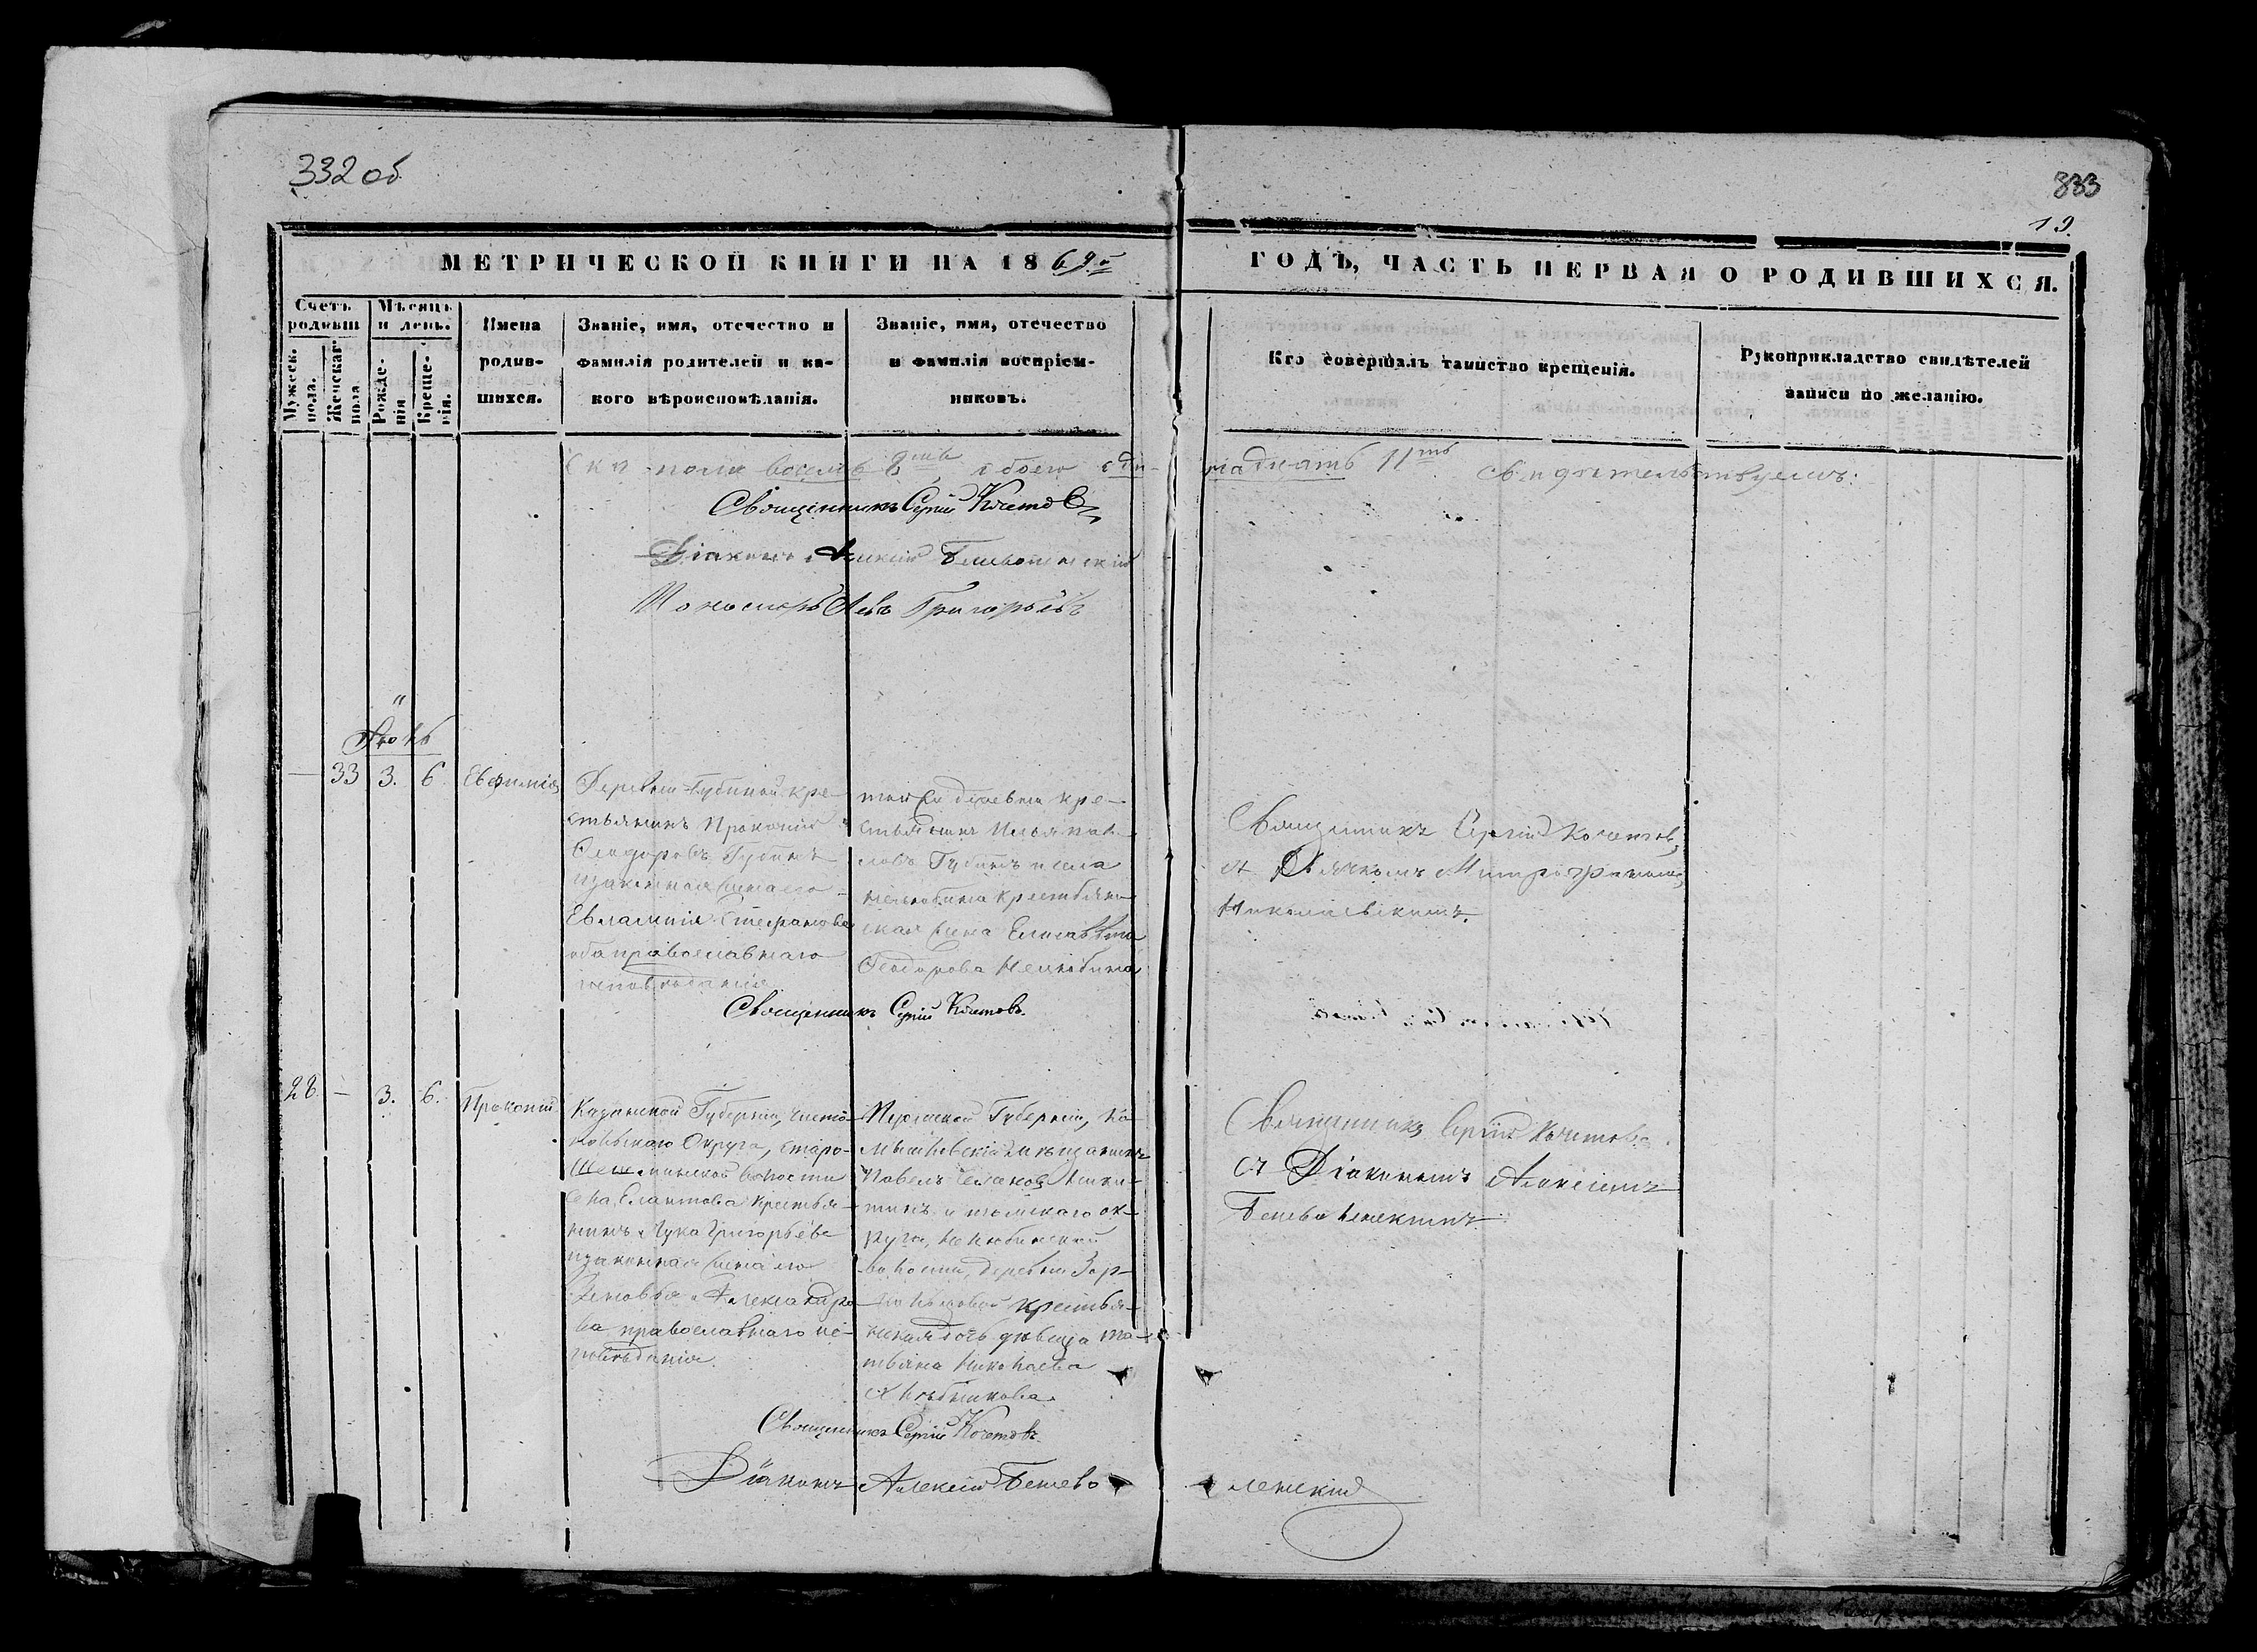 332 об
833
19.
МЕТРИЧЕСКОЙ КНИГИ НА 1869й
ГОДЪ, ЧАСТЬ ПЕРВАЯ О РОДИВШИХСЯ.
Счетъ родивш
Мужеск. пола.
Женскаг. пола
Мѣсяцъ и день.
Рожденія
Крещенія.
Имена родившихся.
Званіе, имя, отечество и фамилія родителей и какого вѣроисповѣданія.
Званіе, имя, отечество и фамилія воспріемниковъ.
Кто совершалъ таинство крещенія.
Рукоприкладство свидѣтелей записи по желанію.
пола восемь 8мь, обоего оди-
надцать 11ть свидѣтельствуемъ:
Священникъ Сергій Кочетовъ
Діаконъ Алексій
Пономарь Левъ Григорьевъ
Іюль
— 33 3. 6. Евфимія
Деревни Губиной кре-
стьянинъ Прокопій
Ѳеодоровъ Губинъ
и законная жена его
Евлампія Стефанова
оба православнаго
исповѣданія
той же деревни кре-
стьянинъ Илья
Губинъ и села
Нелюбина крестьян-
ская жена Елисавета
Ѳеодорова Нелюбина
Священникъ Сергій Кочетовъ
съ Дьячкомъ Митрофаномъ
Николаевскимъ.
Священникъ Сергій Кочетовъ.
28 — 3. 6. Прокопій
Казанской Губерніи, Чисто-
польскаго Округа, Старо-
Шешминской волости
села Елантова крестья-
нинъ Лука Григорьевъ
и законная жена его
Зиновья Александро-
ва православнаго ис-
повѣданія.
Пермской Губерніи, Ка-
мышловскій
Павелъ Ники-
тинъ и томскаго ок-
руга, Нелюбинской
волости, деревни Зор-
кальцовой крестья-
нская дочь дѣвица Та-
тьяна Николаева
Хлѣбникова.
Священникъ Сергій Кочетовъ
съ Діакономъ Алексіемъ
Священникъ Сергій Кочетовъ.
Діаконъ Алексій Бенево
ленскій